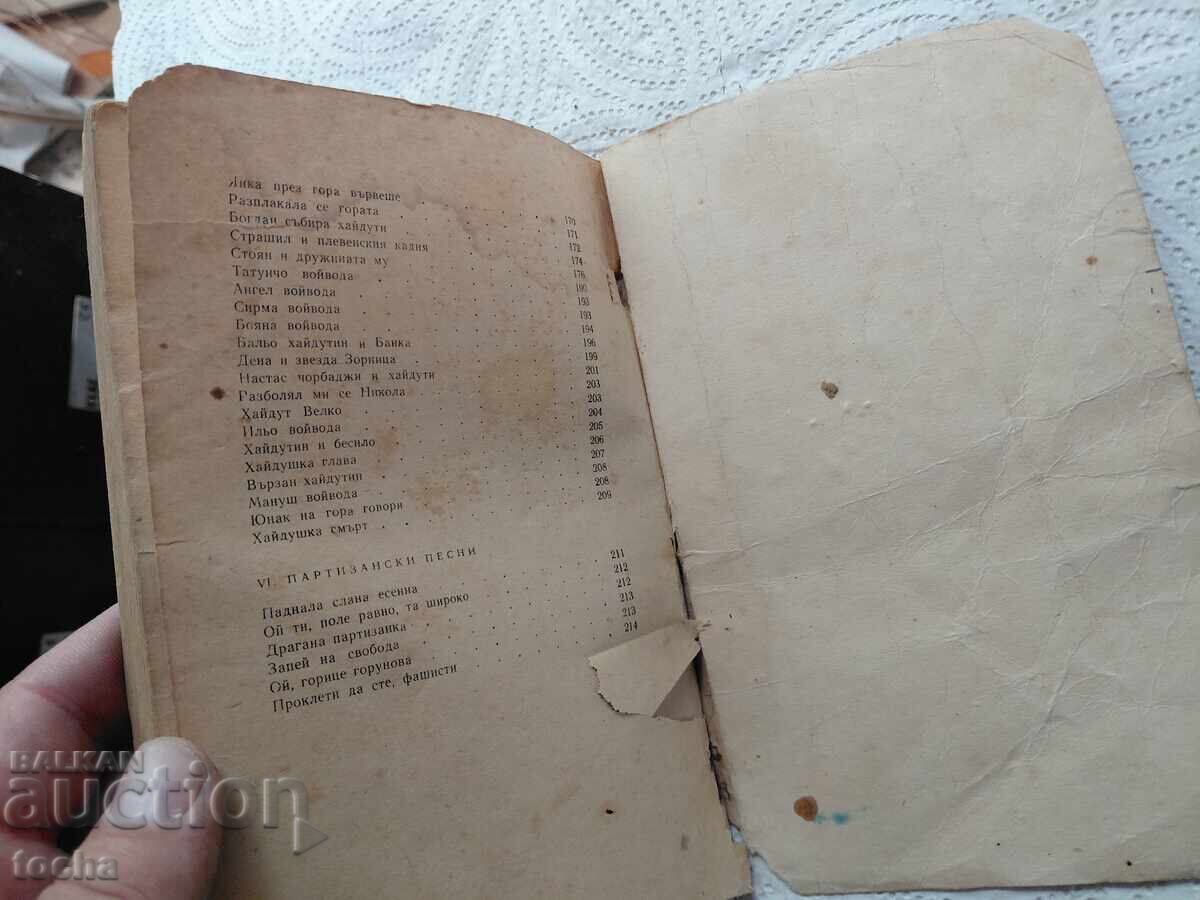 Янка през гора вървеше . . . . . 170
Разплакала се гората . . . . . 171
Богдан събира хайдути . . . . . 172
Страшил и плевенския кадия . . . . . 174
Стоян и дружината му . . . . . 176
Татунчо войвода . . . . . 190
Ангел войвода . . . . . 193
Сирма войвода . . . . . 193
Бояна войвода . . . . . 194
Бальо хайдутин и Банка . . . . . 196
Дена и звезда Зорница . . . . . 199
Настас чорбаджи и хайдути . . . . . 201
Разболял ми се Никола . . . . . 203
Хайдут Велко . . . . . 203
Ильо войвода . . . . . 204
Хайдутин и бесило . . . . . 205
Хайдушка глава . . . . . 206
Вързан хайдутин . . . . . 207
Мануш войвода . . . . . 208
Юнак на гора говори . . . . . 208
Хайдушка смърт . . . . . 209
VI. ПАРТИЗАНСКИ ПЕСНИ
Паднала слана есенна . . . . . 211
Ой ти, поле равно, та широко . . . . . 212
Драгана партизанка . . . . . 212
Запей на свобода . . . . . 213
Ой, горице горунова . . . . . 213
Проклети да сте, фашисти . . . . . 214
BALKAN
auction
tocha